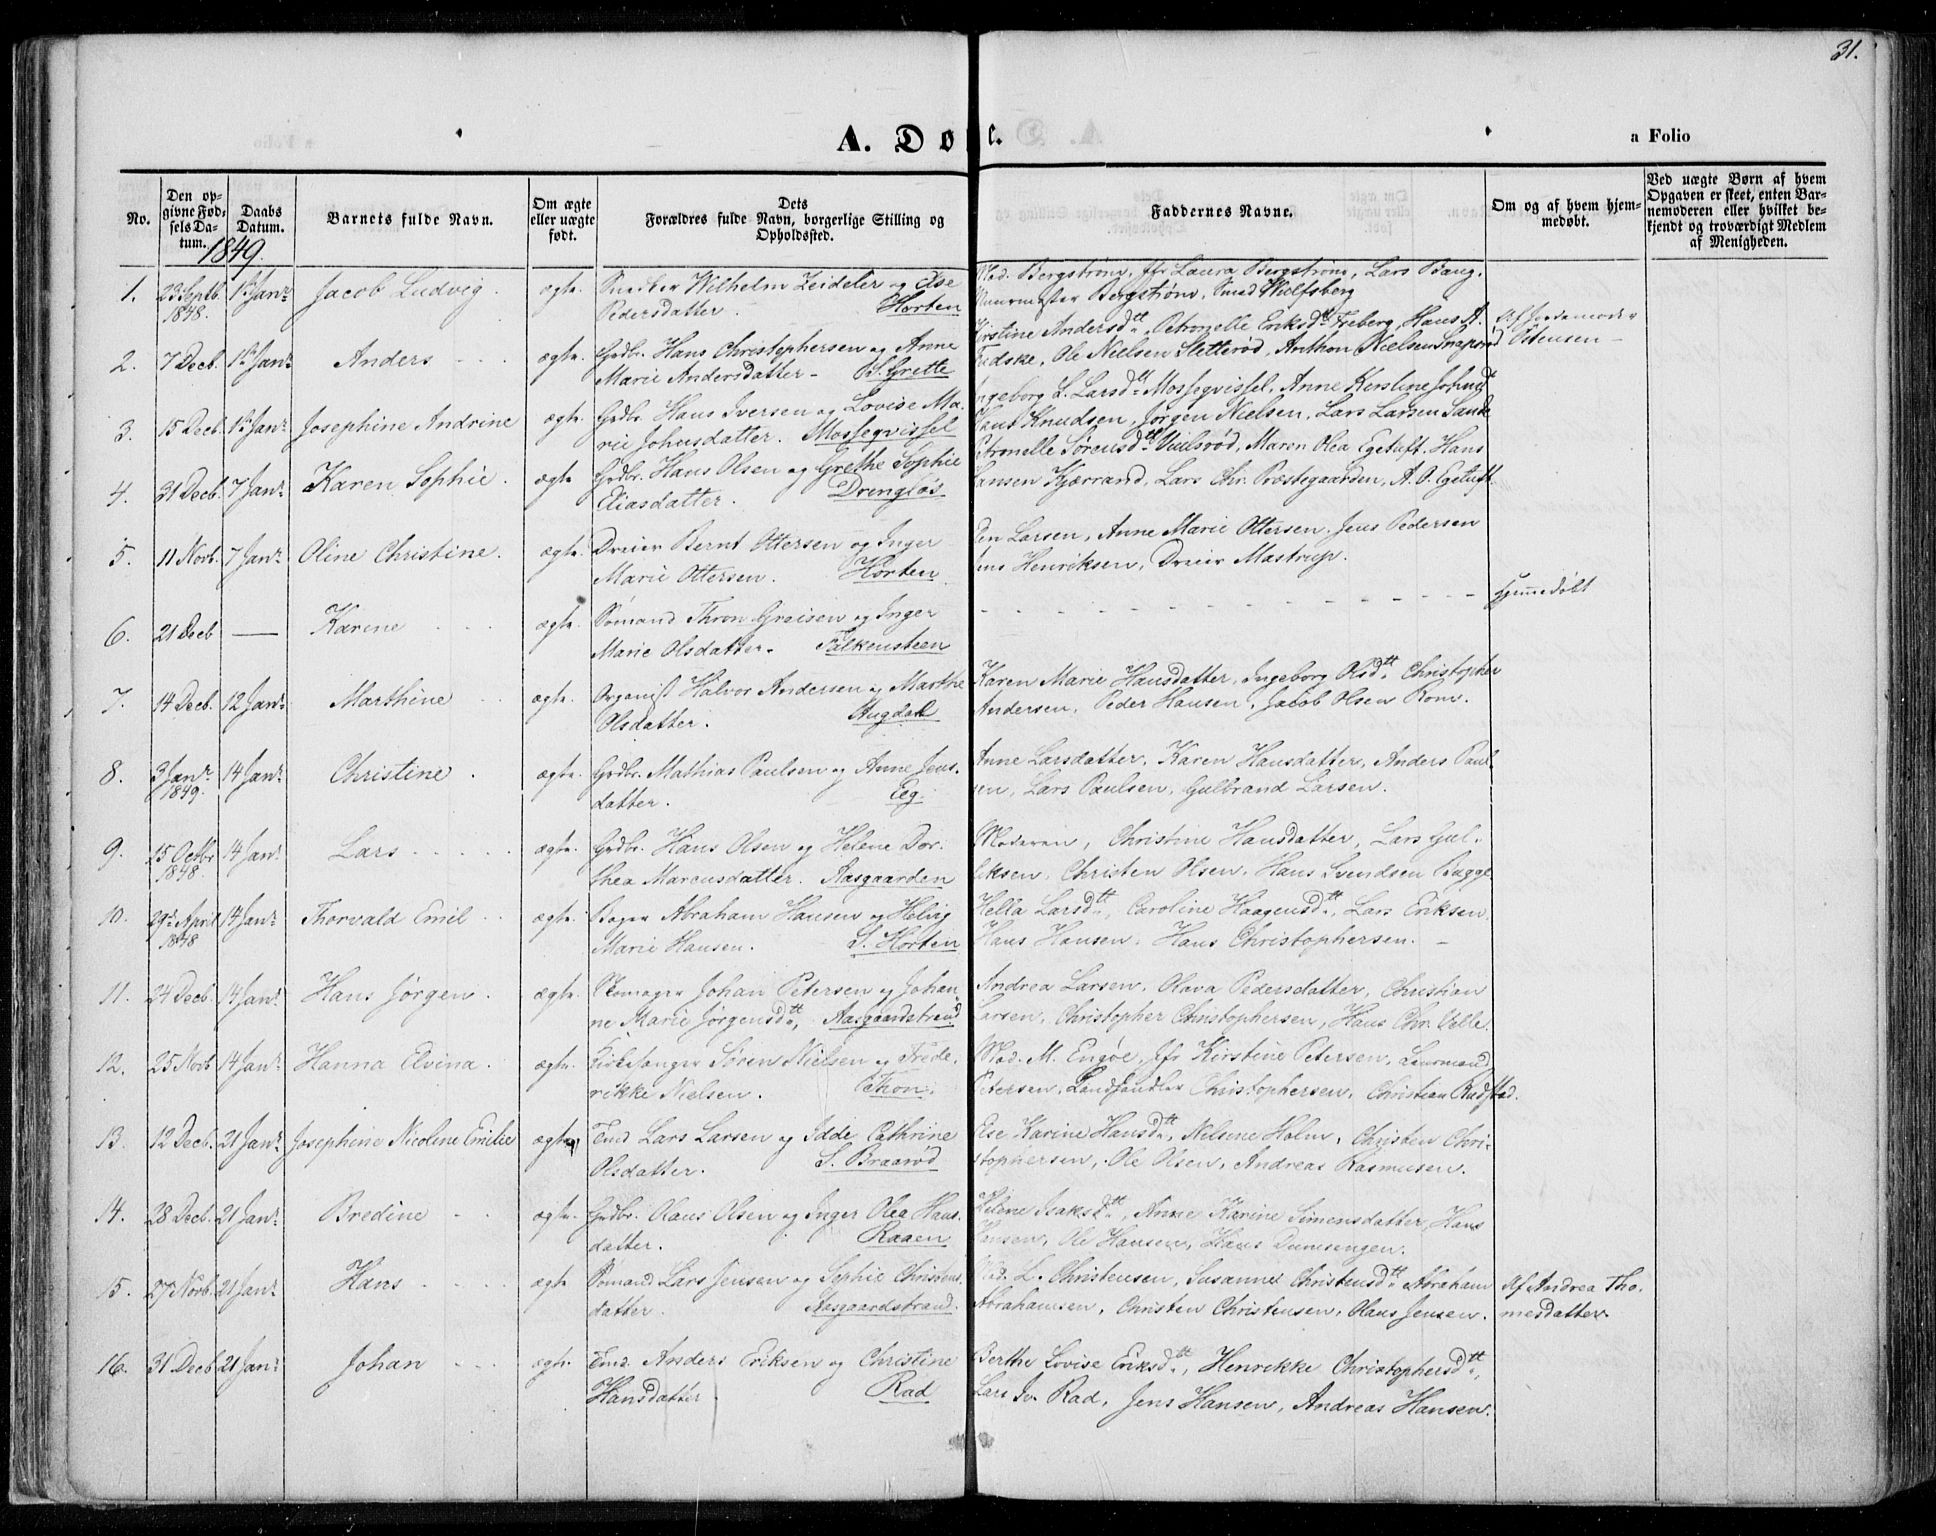 31.
A. Døbte.
a Folio
No.
Den opgivne Fødsels Datum.
Daabs Datum.
Barnets fulde Navn.
Om ægte eller uægte født.
Dets Forældres fulde Navn, borgerlige Stilling og Opholdsted.
Faddernes Navne.
Om og af hvem hjemmedøbt.
Ved uægte Børn af hvem Opgaven er skeet, enten Barnemoderen eller hvilket bekjendt og troværdigt Medlem af Menigheden.
1849.
1. 23 Septb. 1848. 1ste Janr Jacob Ludvig. ægte. Wilhelm Zeideler og Else
Pedersdatter. Horten
Mad. Bergstrøm, Jfr Laura Bergstrøm, Lars Baug,
Muurmester Bergstrøm, Smed Wulfsberg
2. 7 Decb. 1ste Janr Anders ægte. Grdbr. Hans Christophersen og Anne
Marie Andersdatter - S. Grette
Kirstine Andersdtt, Petronelle Eriksdtt Freberg, Hans A.
Ole Nielsen Sletterød, Anthon Nielsen
Af Jordemoder
Ottensen -
3. 15 Decb. 1ste Janr Josephine Andrine ægte. Grdbr. Hans Iversen og Lovise Ma-
rie Johnsdatter. Mossegvissel
Ingeborg L. Larsdtt Mossegvissel, Anne Kerstine
Hans Knudsen, Jørgen Nielsen, Lars Larsen Sande
4. 31 Decb. 7 Janr Karen Sophie. ægte Grdbr. Hans Olsen og Grethe Sophie
Eliasdatter. Drengløs
Petronelle Sørensdtt Vuulsrød, Maren Olea Egetuft, Hans
Hansen Kjærrand, Lars Chr. Præstegaarden, A. O. Egetuft.
5. 11 Novb. 7 Janr Oline Christine. ægte. Dreier Bernt Ottersen og Inger
Marie Ottersen. Horten
Larsen, Anne Marie Ottersen, Jens Pedersen
Jens Henriksen, Dreier Mastrup.
6. 21 Decb — Karine ægte. Sømand Thron Greisen og Inger
Marie Olsdatter. Falkensteen
Hjemmedøbt
7. 14 Decb. 12 Janr Marthine ægte. Organist Halvor Andersen og Marthe
Olsdatter. Augdal
Karen Marie Hansdatter, Ingeborg Olsdtt Christopher
Andersen, Peder Hansen, Jacob Olsen Rom.
8. 3 Janr 1849. 14 Janr Christine. ægte. Grdbr. Mathias Paulsen og Anne Jens-
datter. Eeg.
Anne Larsdatter, Karen Hansdatter, Anders Paul-
sen, Lars Paulsen, Gulbrand Larsen.
9. 15 Octbr 1848. 14 Janr Lars ægte. Grdbr. Hans Olsen og Helene Dor-
thea Marcusdatter. Aasgaarden
Moderen, Christine Hansdatter, Lars Gul-
liksen, Christen Olsen, Hans Svendsen Bugge
10. 29de April 1848 14 Janr Thorvald Emil ægte. Bager Abraham Hansen og Helvig
Marie Hansen. S. Horten
Hella Larsdtt, Caroline Haagensdtt, Lars Eriksen
Hans Hansen, Hans Christophersen. -
11. 24 Decb. 14 Janr Hans Jørgen. ægte. Skomager Johan Petersen og Johan-
ne Marie Jørgensdtt, Aasgaardstrand
Andrea Larsen, Olava Pedersdatter, Christian
Larsen, Christopher Christophersen, Hans Chr. Velle.
12. 25 Novb 14 Janr Hanna Elvina. ægte. Kirkesanger Søren Nielsen og Frede-
rikke Nielsen. Thon.
Mad. M. Engøe, Jfr Kirstine Petersen, Lensmand
Petersen, Landhandler Christophersen, Christian Rudstad.
13. 12 Decb. 21 Janr Josephine Nicoline Emilie ægte Lars Larsen og Idde Cathrine
Olsdatter. S. Braarød
Else Karine Hansdtt, Nilsine Holm, Christen Chri-
stophersen, Ole Olsen, Andreas Rasmusen.
14. 28 Decb. 21 Janr Bredine ægte. Grdbr. Olaus Olsen og Inger Olea Hans-
datter. Raaen
Helene Isaksdtt, Anne Karine Simensdatter, Hans
Hansen, Ole Hansen, Hans Dunsengen.
15. 27 Novb. 21 Janr Hans ægte Sømand Lars Jensen og Sophie Christens-
datter. Aasgaardstrand.
Mad. L. Christensen, Susanne Christensdtt Abraham
Abrahamsen, Christen Christensen, Olaus Jensen.
Af Andrea Tho-
mesdatter.
16. 31 Decb 21 Janr Johan ægte. Anders Eriksen og Christine
Hansdatter. Rad
Berthe Lovise Eriksdtt, Henrikke Christophersdtt,
Lars Iv. Rad, Jens Hansen, Andreas Hansen.